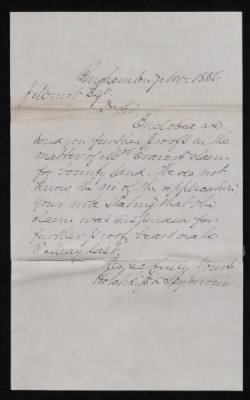 Binghamton 7 Nov. 1856
J Minot Esqr.
Dr Sir
Enclosed we
send you further proofs in the
matter of claim
for bounty land. We do not
know the no of the application.
Your note stating that the
claim was suspended for
further proof bears date
last,
Respectfully Yours
Hotchkiss & Seymour